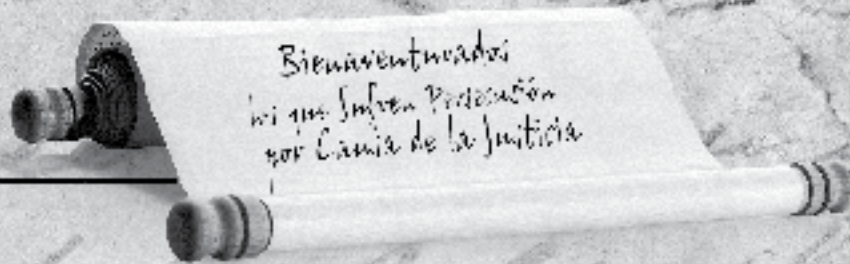 Bienaventurados
los que Sufren Persecución
por Causa de la Justicia